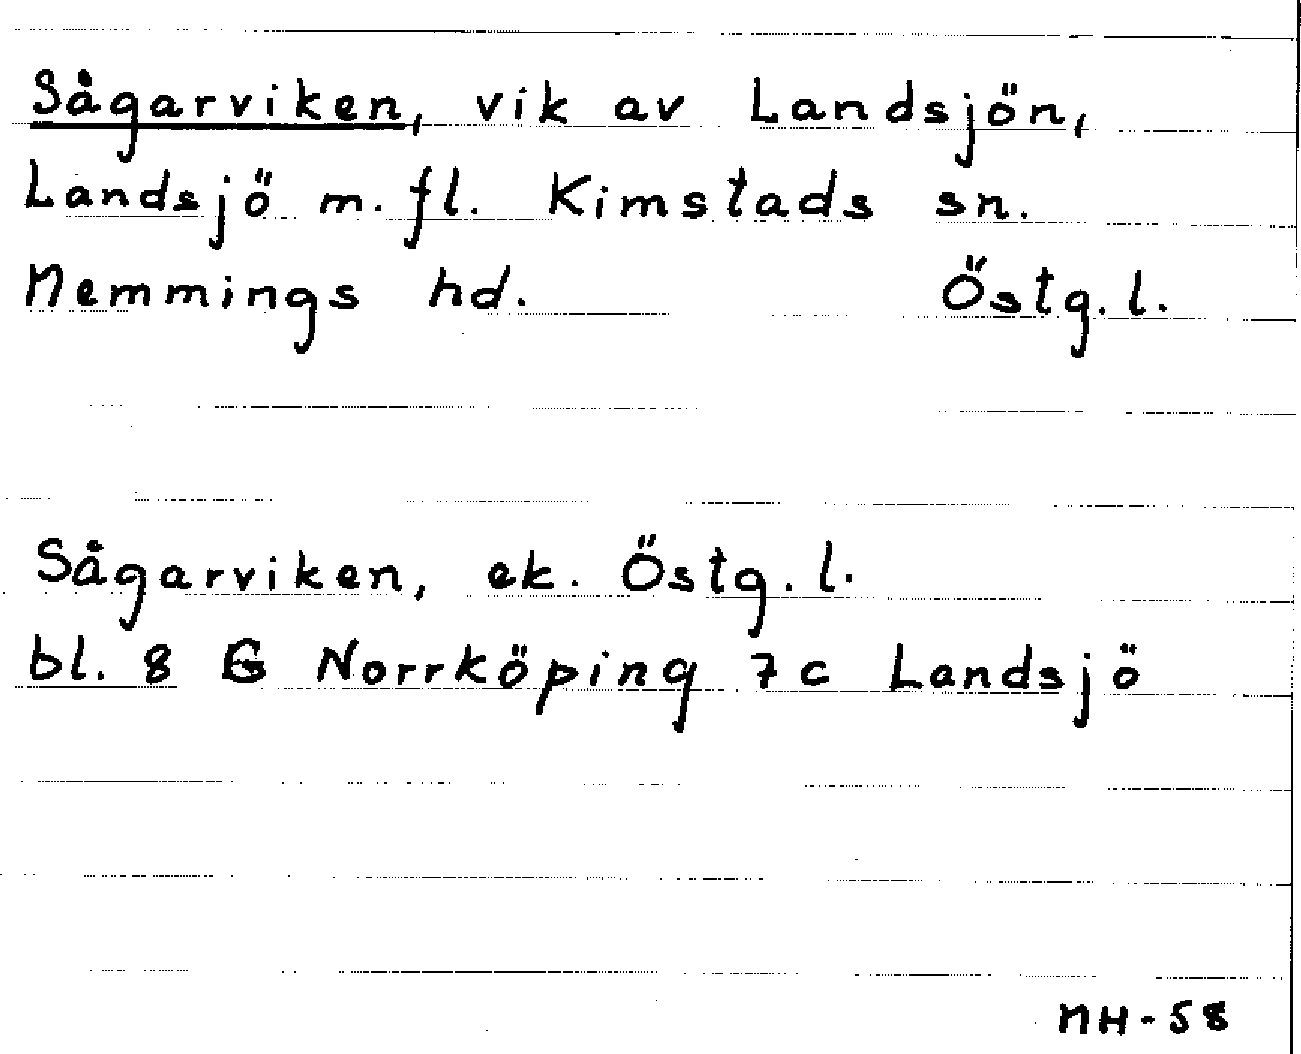 Sågarviken, vik av Landsjön,
Landsjö m.fl. Kimstads sn.
Memmings hd. Östg.l.
Sågarviken, ek. Östg.l.
bl. 8 G Norrköping 7c Landsjö
MH-58